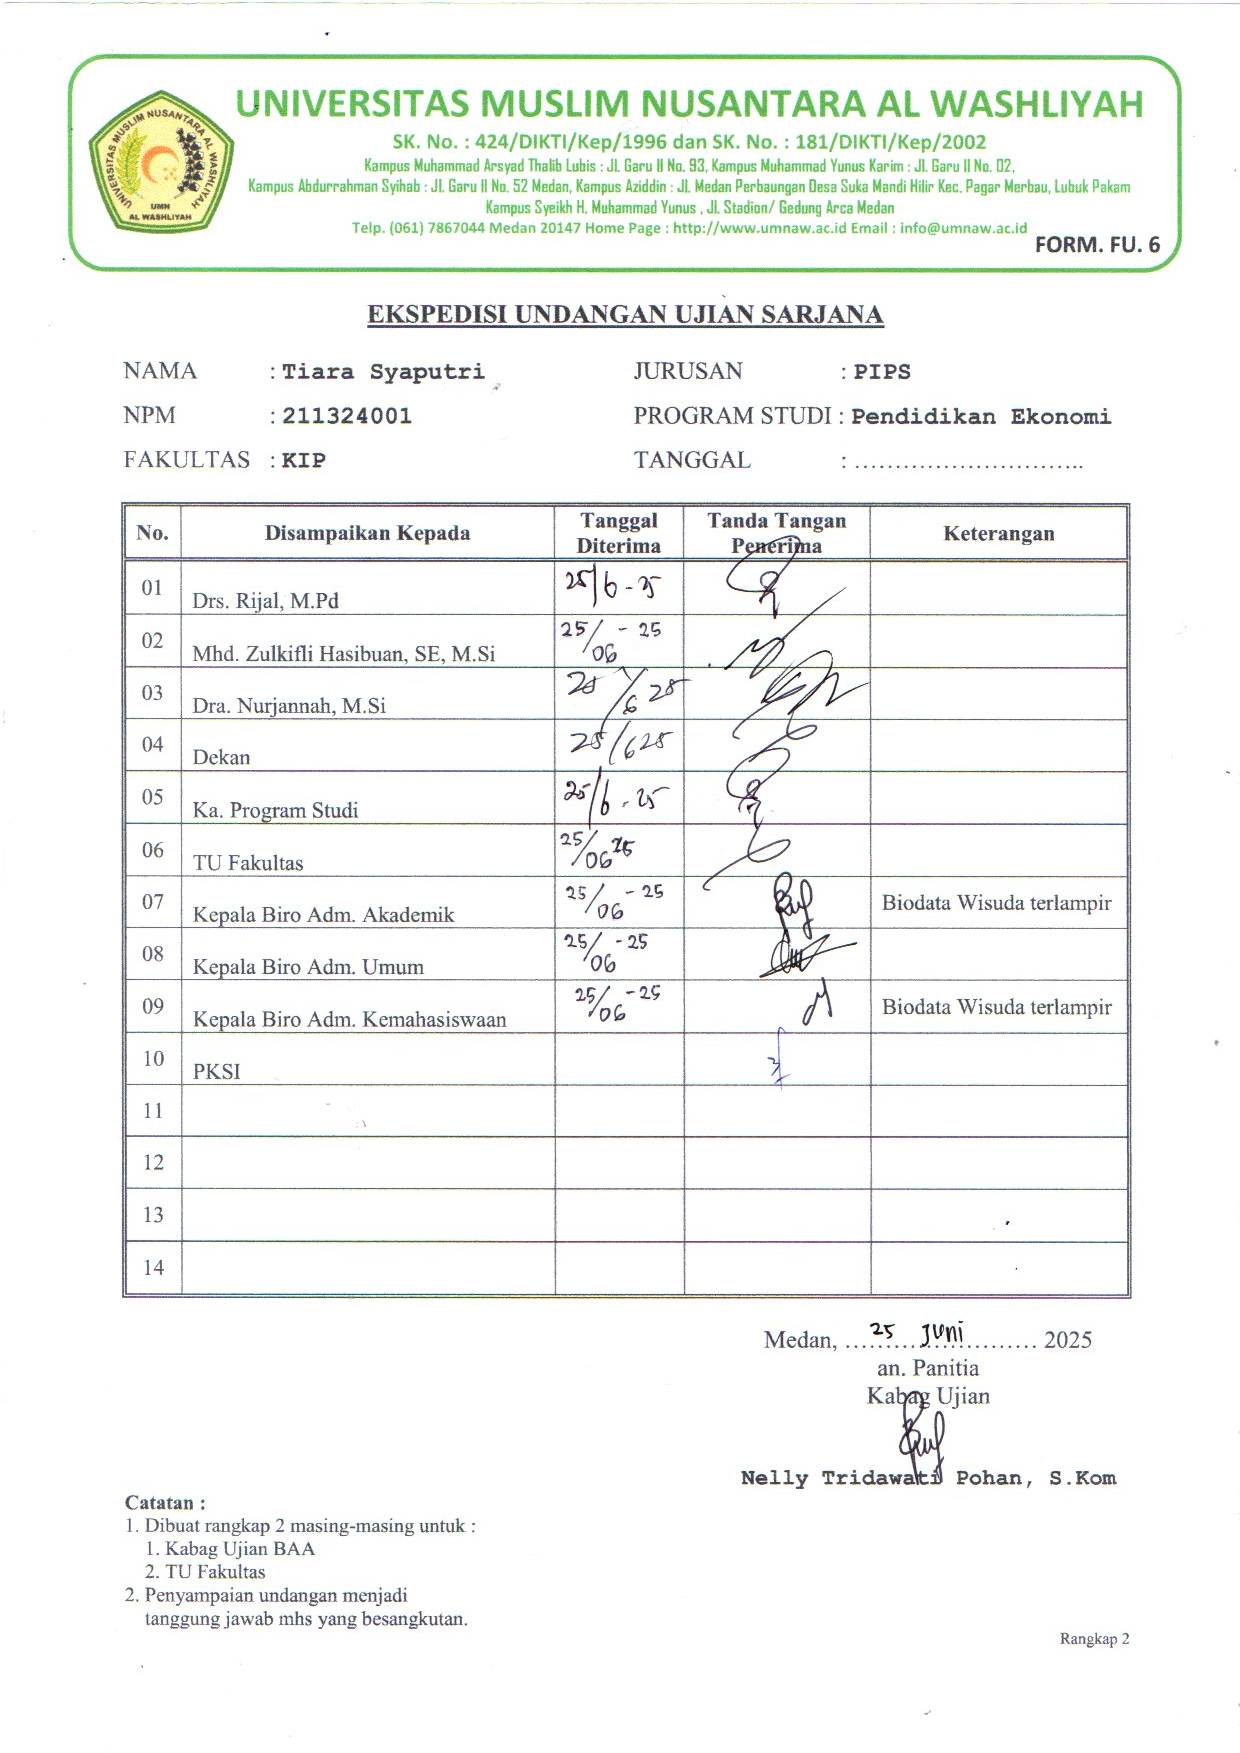 UNIVERSITAS MUSLIM NUSANTARA AL WASHLIYAH
SK. No. : 424/DIKTI/Kep/1996 dan SK. No. : 181/DIKTI/Kep/2002
Kampus Muhammad Arsyad Thalib Lubis : Jl. Garu II No. 93, Kampus Muhammad Yunus Karim : Jl. Garu II No. 02,
Kampus Abdurrahman Syihab : Jl. Garu II No. 52 Medan, Kampus Aziddin : Jl. Medan Perbaungan Desa Suka Mandi Hilir Kec. Pagar Merbau, Lubuk Pakam
Kampus Syeikh H. Muhammad Yunus , Jl. Stadion/ Gedung Arca Medan
Telp. (061) 7867044 Medan 20147 Home Page : http://www.umnaw.ac.id Email : info@umnaw.ac.id
FORM. FU. 6
UNIVERSITAS MUSLIM NUSANTARA AL WASHLIYAH
UMN
AL WASHLIYAH
EKSPEDISI UNDANGAN UJIAN SARJANA
NAMA : Tiara Syaputri JURUSAN : PIPS
NPM : 211324001 PROGRAM STUDI : Pendidikan Ekonomi
FAKULTAS : KIP TANGGAL : ................................
No. Disampaikan Kepada Tanggal Diterima Tanda Tangan Penerima Keterangan
01 Drs. Rijal, M.Pd 25/6-25
02 Mhd. Zulkifli Hasibuan, SE, M.Si 25/06-25
03 Dra. Nurjannah, M.Si 25/6 25
04 Dekan 25/6 25
05 Ka. Program Studi 25/6-25
06 TU Fakultas 25/06 25
07 Kepala Biro Adm. Akademik 25/06-25 Biodata Wisuda terlampir
08 Kepala Biro Adm. Umum 25/06-25
09 Kepala Biro Adm. Kemahasiswaan 25/06-25 Biodata Wisuda terlampir
10 PKSI
11
12
13
14
Medan, 25 Juni 2025
an. Panitia
Kabag Ujian
Nelly Tridawati Pohan, S.Kom
Catatan :
1. Dibuat rangkap 2 masing-masing untuk :
1. Kabag Ujian BAA
2. TU Fakultas
2. Penyampaian undangan menjadi
tanggung jawab mhs yang besangkutan.
Rangkap 2